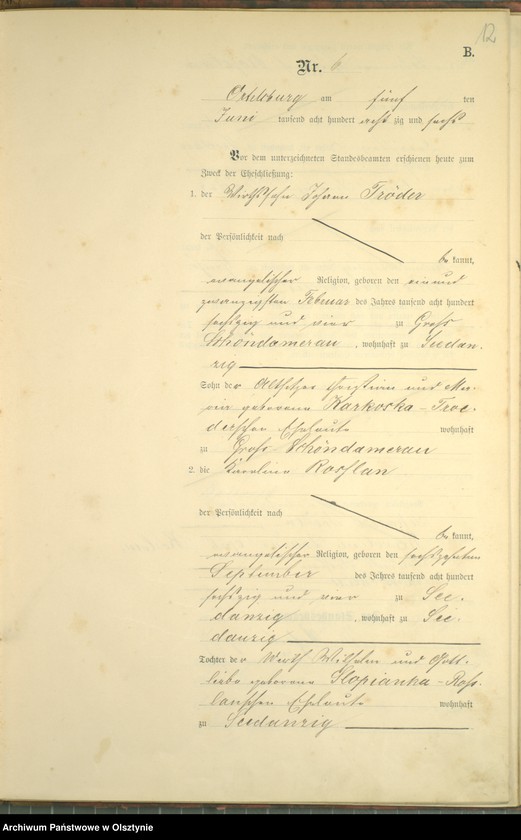 12
B.
Nr. 6
Ortelsburg am fünf ten
Juni tausend acht hundert acht zig und sechs
Vor dem unterzeichneten Standesbeamten erschienen heute zum
Zweck der Eheschließung:
1. der Wirthssohn Johann Tröder
der Persönlichkeit nach
be kannt,
evangelischer Religion, geboren den einund
zwanzigsten Februar des Jahres tausend acht hundert
sechszig und vier zu Groß
Schöndamerau, wohnhaft zu Seedan-
zig
Sohn der Altsitzer Christian und Ma-
rie geborene Karkoska-Troe-
derschen Eheleute wohnhaft
zu Groß Schöndamerau
2. die Karoline Rosslan
der Persönlichkeit nach
be kannt,
evangelischer Religion, geboren den sechszehnten
September des Jahres tausend acht hundert
sechszig und vier zu See-
danzig, wohnhaft zu See-
danzig
Tochter der Wirth Wilhelm und Gott-
liebe geborene Slopianka-Ross-
lanschen Eheleute wohnhaft
zu Seedanzig
Archiwum Państwowe w Olsztynie